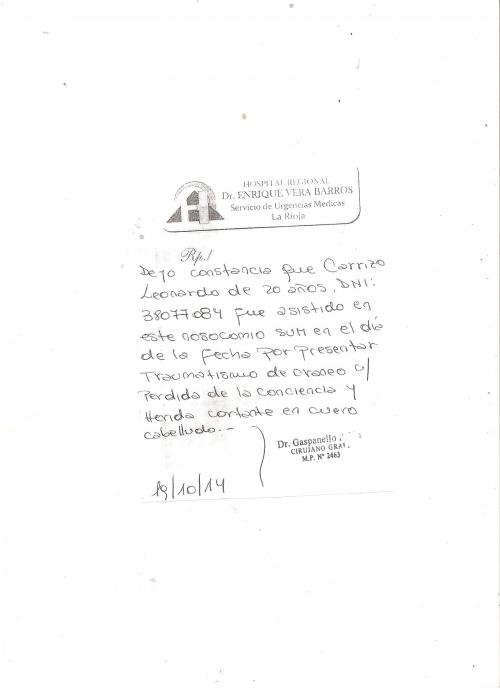 HOSPITAL REGIONAL
Dr. ENRIQUE VERA BARROS
Servicio de Urgencias Medicas
La Rioja
Rp./
Dejo constancia que Carrizo
Leonardo de 20 años, DNI:
38077084 fue asistido en
este nosocomio SUM en el día
de la fecha por presentar
Traumatismo de craneo c/
Perdida de la conciencia y
Herida cortante en cuero
cabelludo.-
Dr. Gaspanello
CIRUJANO GRAL.
M.P. Nº 2463
19/10/14